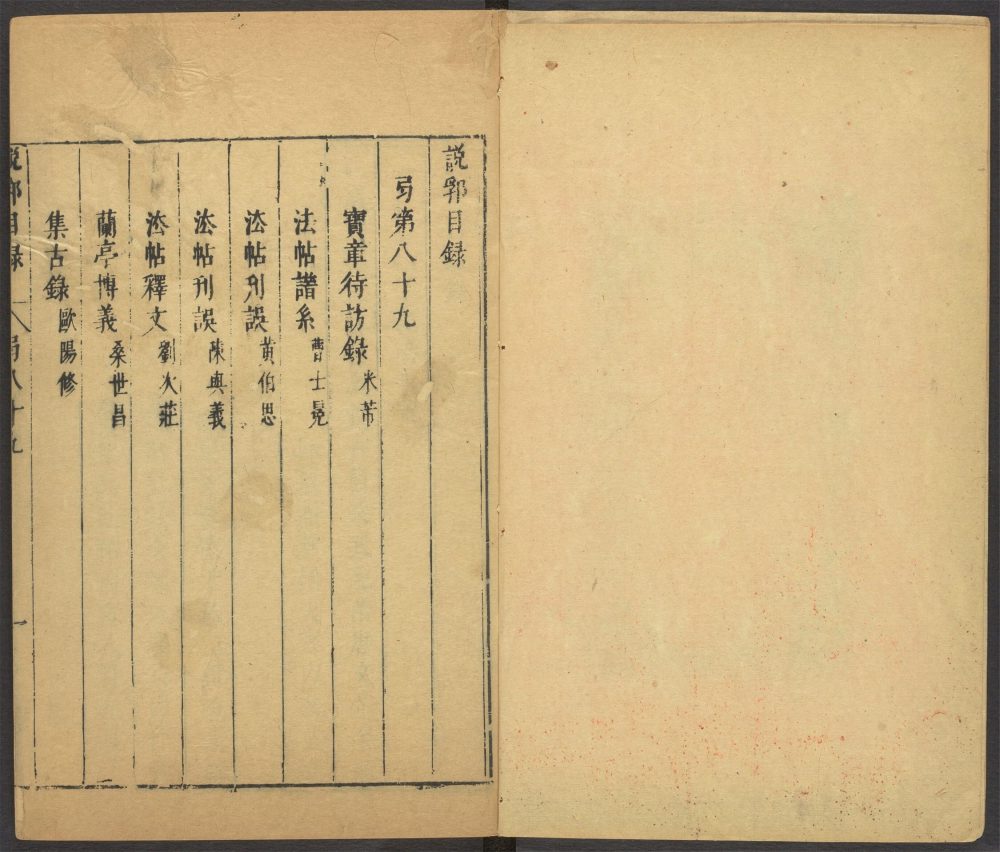 説郛目録
弓第八十九
寳章待訪錄 米芾
法帖譜系 曹士冕
法帖刋誤 黄伯思
法帖刋誤 陳與義
法帖釋文 劉次莊
蘭亭博義 桑世昌
集古錄 歐陽修
説郛目録 弓八十九 一